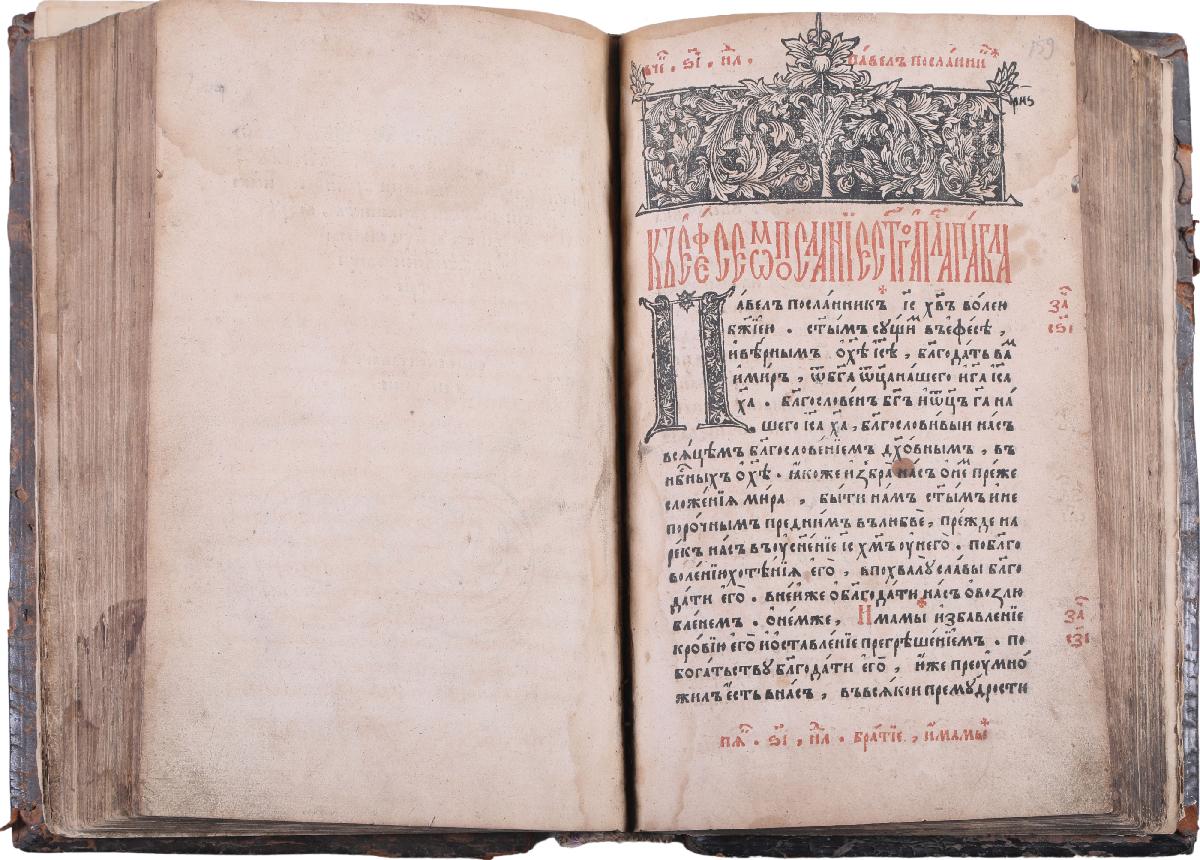 нл҃. павелъ посланни
159
рн҃ѕ
Къ ефесеѡм посланїе ст҃го ап҃ла павла
Павелъ посланникъ і҃с х҃въ волею
бж҃їею. ст҃ымъ сущим въефесѣ,
ивѣрнымъ о х҃ѣ і҃сѣ, благодать вам
имиръ, ѿбг҃а ѿц҃а нашего иг҃а і҃са
х҃а. бл҃гословенъ бг҃ъ иѿц҃ъ г҃а на
шего і҃са х҃а, бл҃гословивыи насъ
всяцѣмъ бл҃гословенїемъ дх҃овнымъ, въ
нб҃ныхъ о х҃ѣ. ꙗкоже избра насъ онем преже
сложенїя мира, быти намъ ст҃ымъ ине
порочнымъ преднимъ влюбве, прежде на
рекъ насъ въ усн҃енїе і҃с х҃мъ унего. поблаго
воленїю хотѣнїя его, впохвалу славы бл҃го
дати его. внеиже обл҃годати насъ овозлю
бленемъ. онемже, Имамы избавленїе
кровїю его иоставленїе прегрѣшенїемъ. по
богатьству бл҃годати его, иже преумно
жилъ есть внасъ, въвсякои премудрости
за
ѕ҃і
за
з҃і
нл҃. братїе, имамы